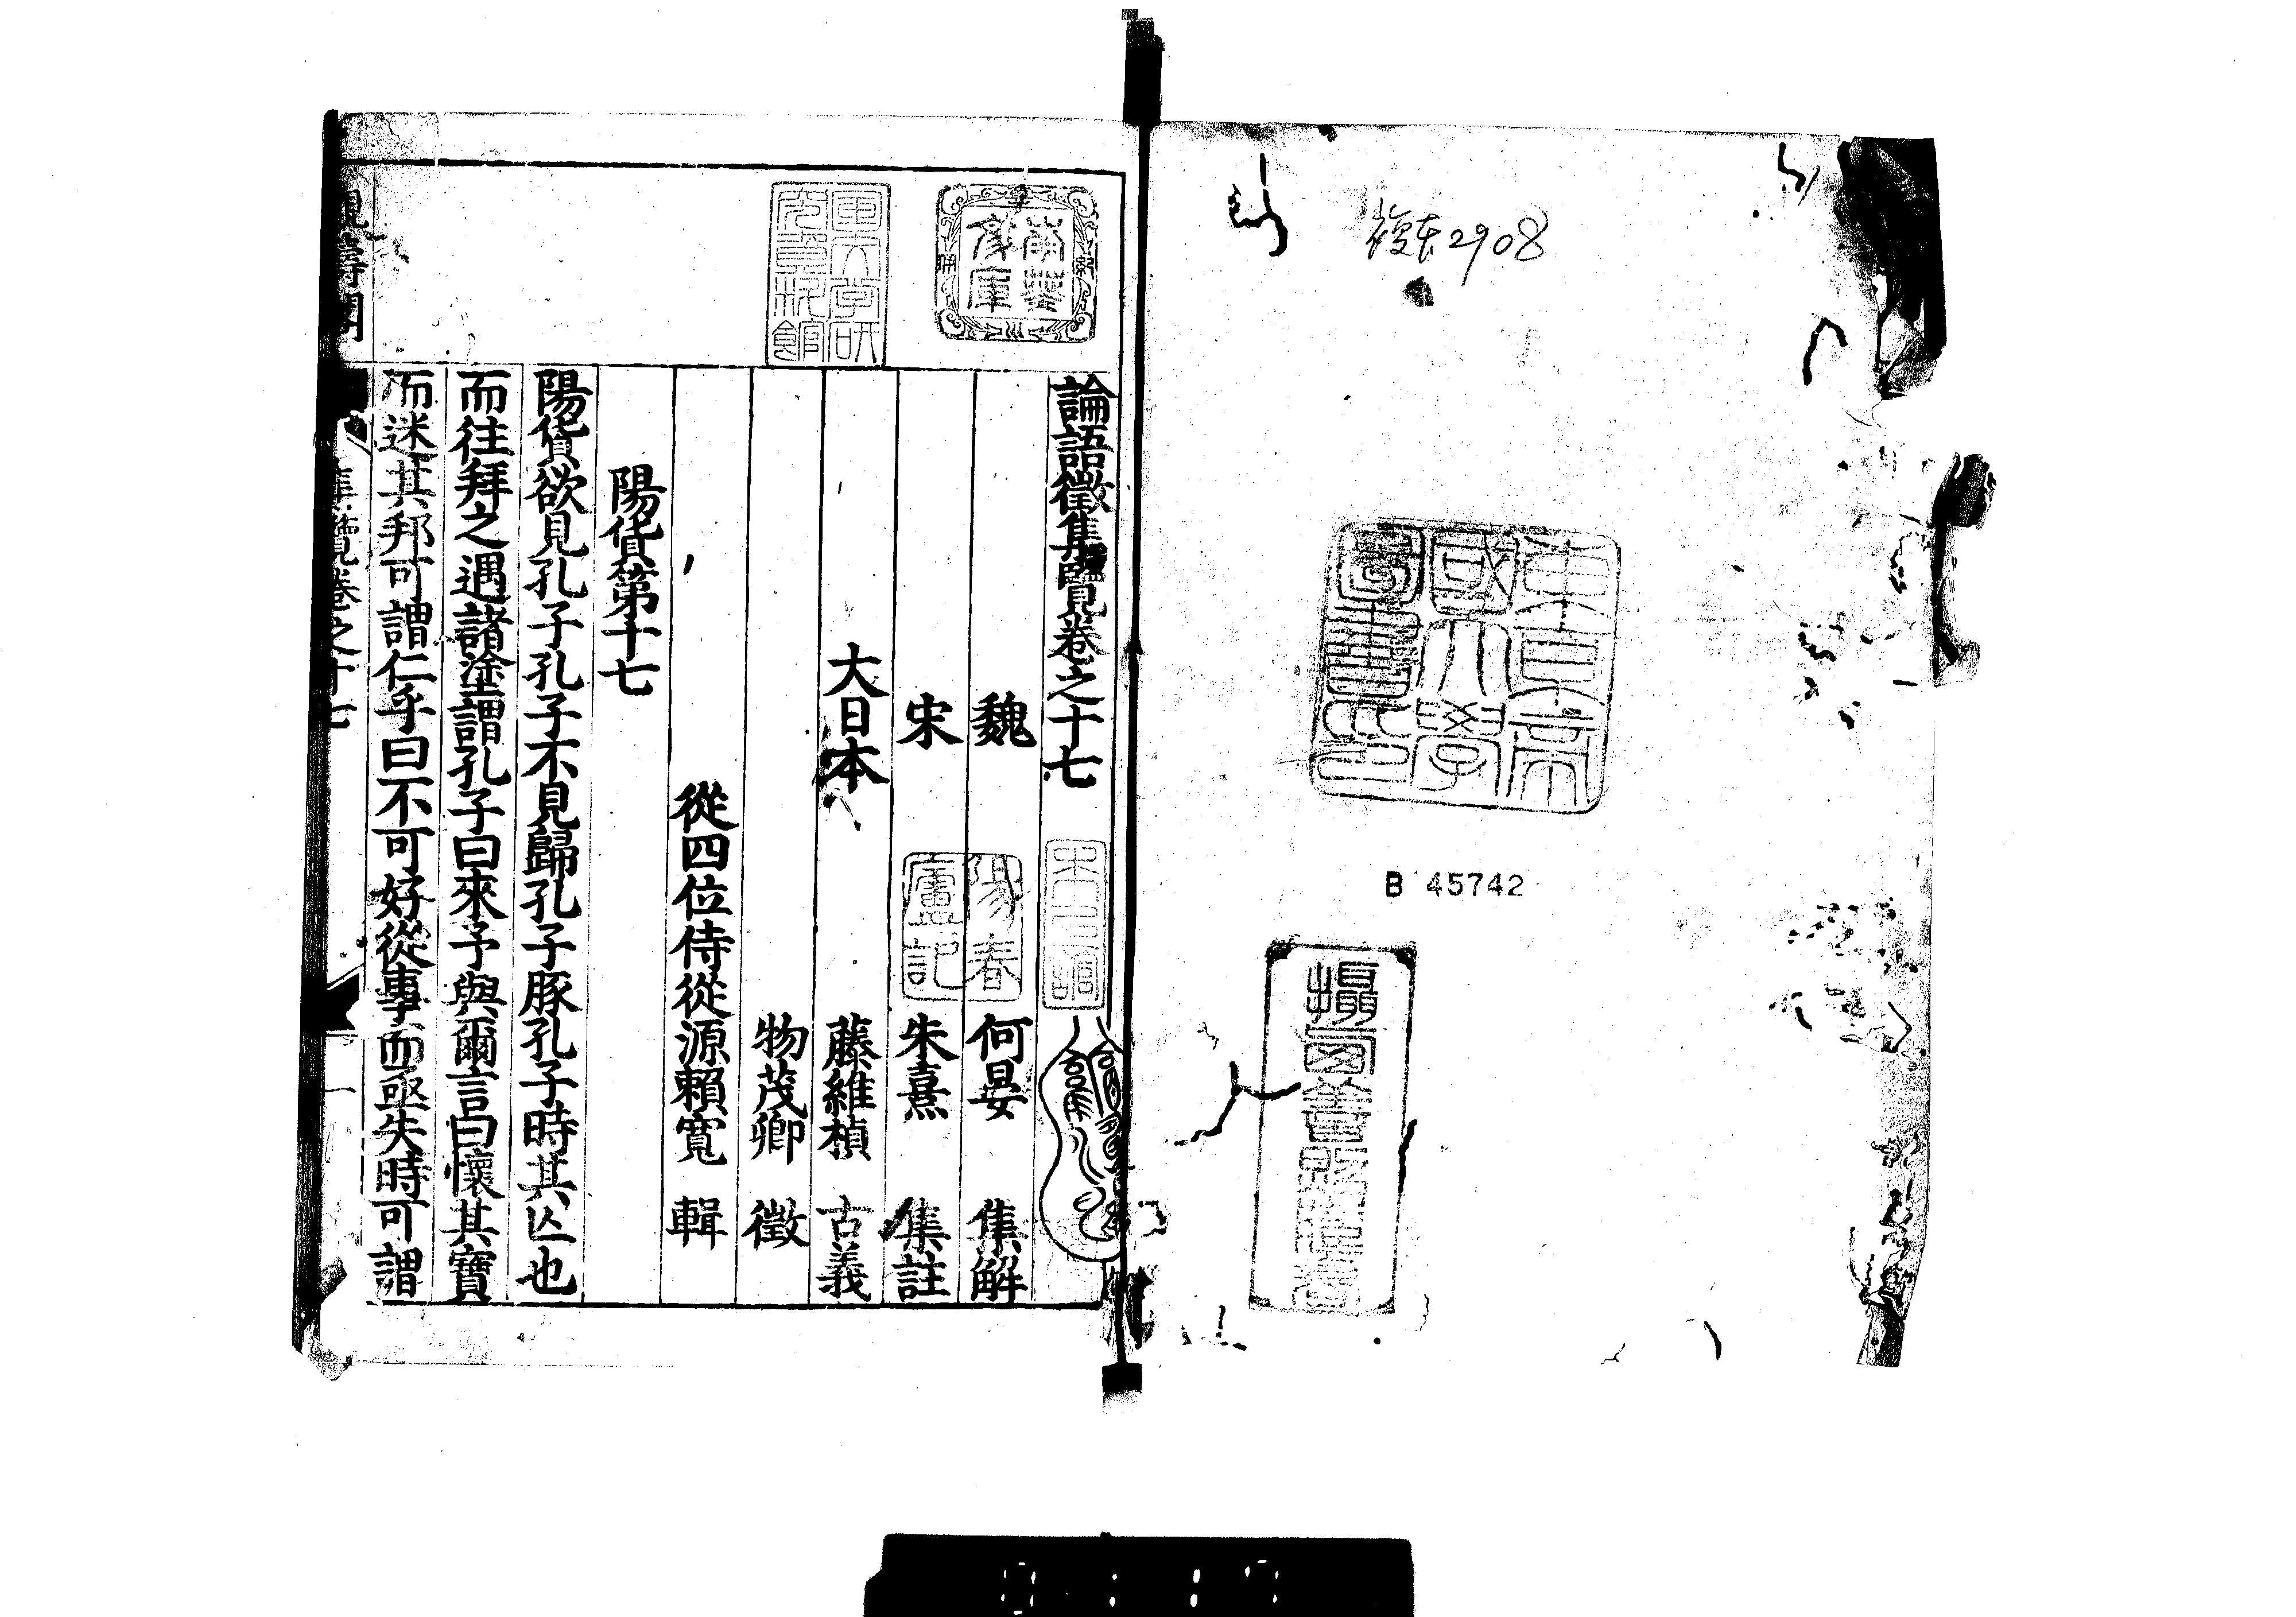 複本2908
東京帝
國大學
圖書印
B 45742
論語徵集覽卷之十七
魏 何晏 集解
宋 朱熹 集註
大日本 藤維楨 古義
物茂卿 徵
從四位侍從源賴寬 輯
陽貨第十七
陽貨欲見孔子孔子不見歸孔子豚孔子時其亾也
而往拜之遇諸塗謂孔子曰來予與爾言曰懷其寶
而迷其邦可謂仁乎曰不可好從事而亟失時可謂
觀濤閣
集覽卷之十七
一
南葵
文庫
陽春
廬記